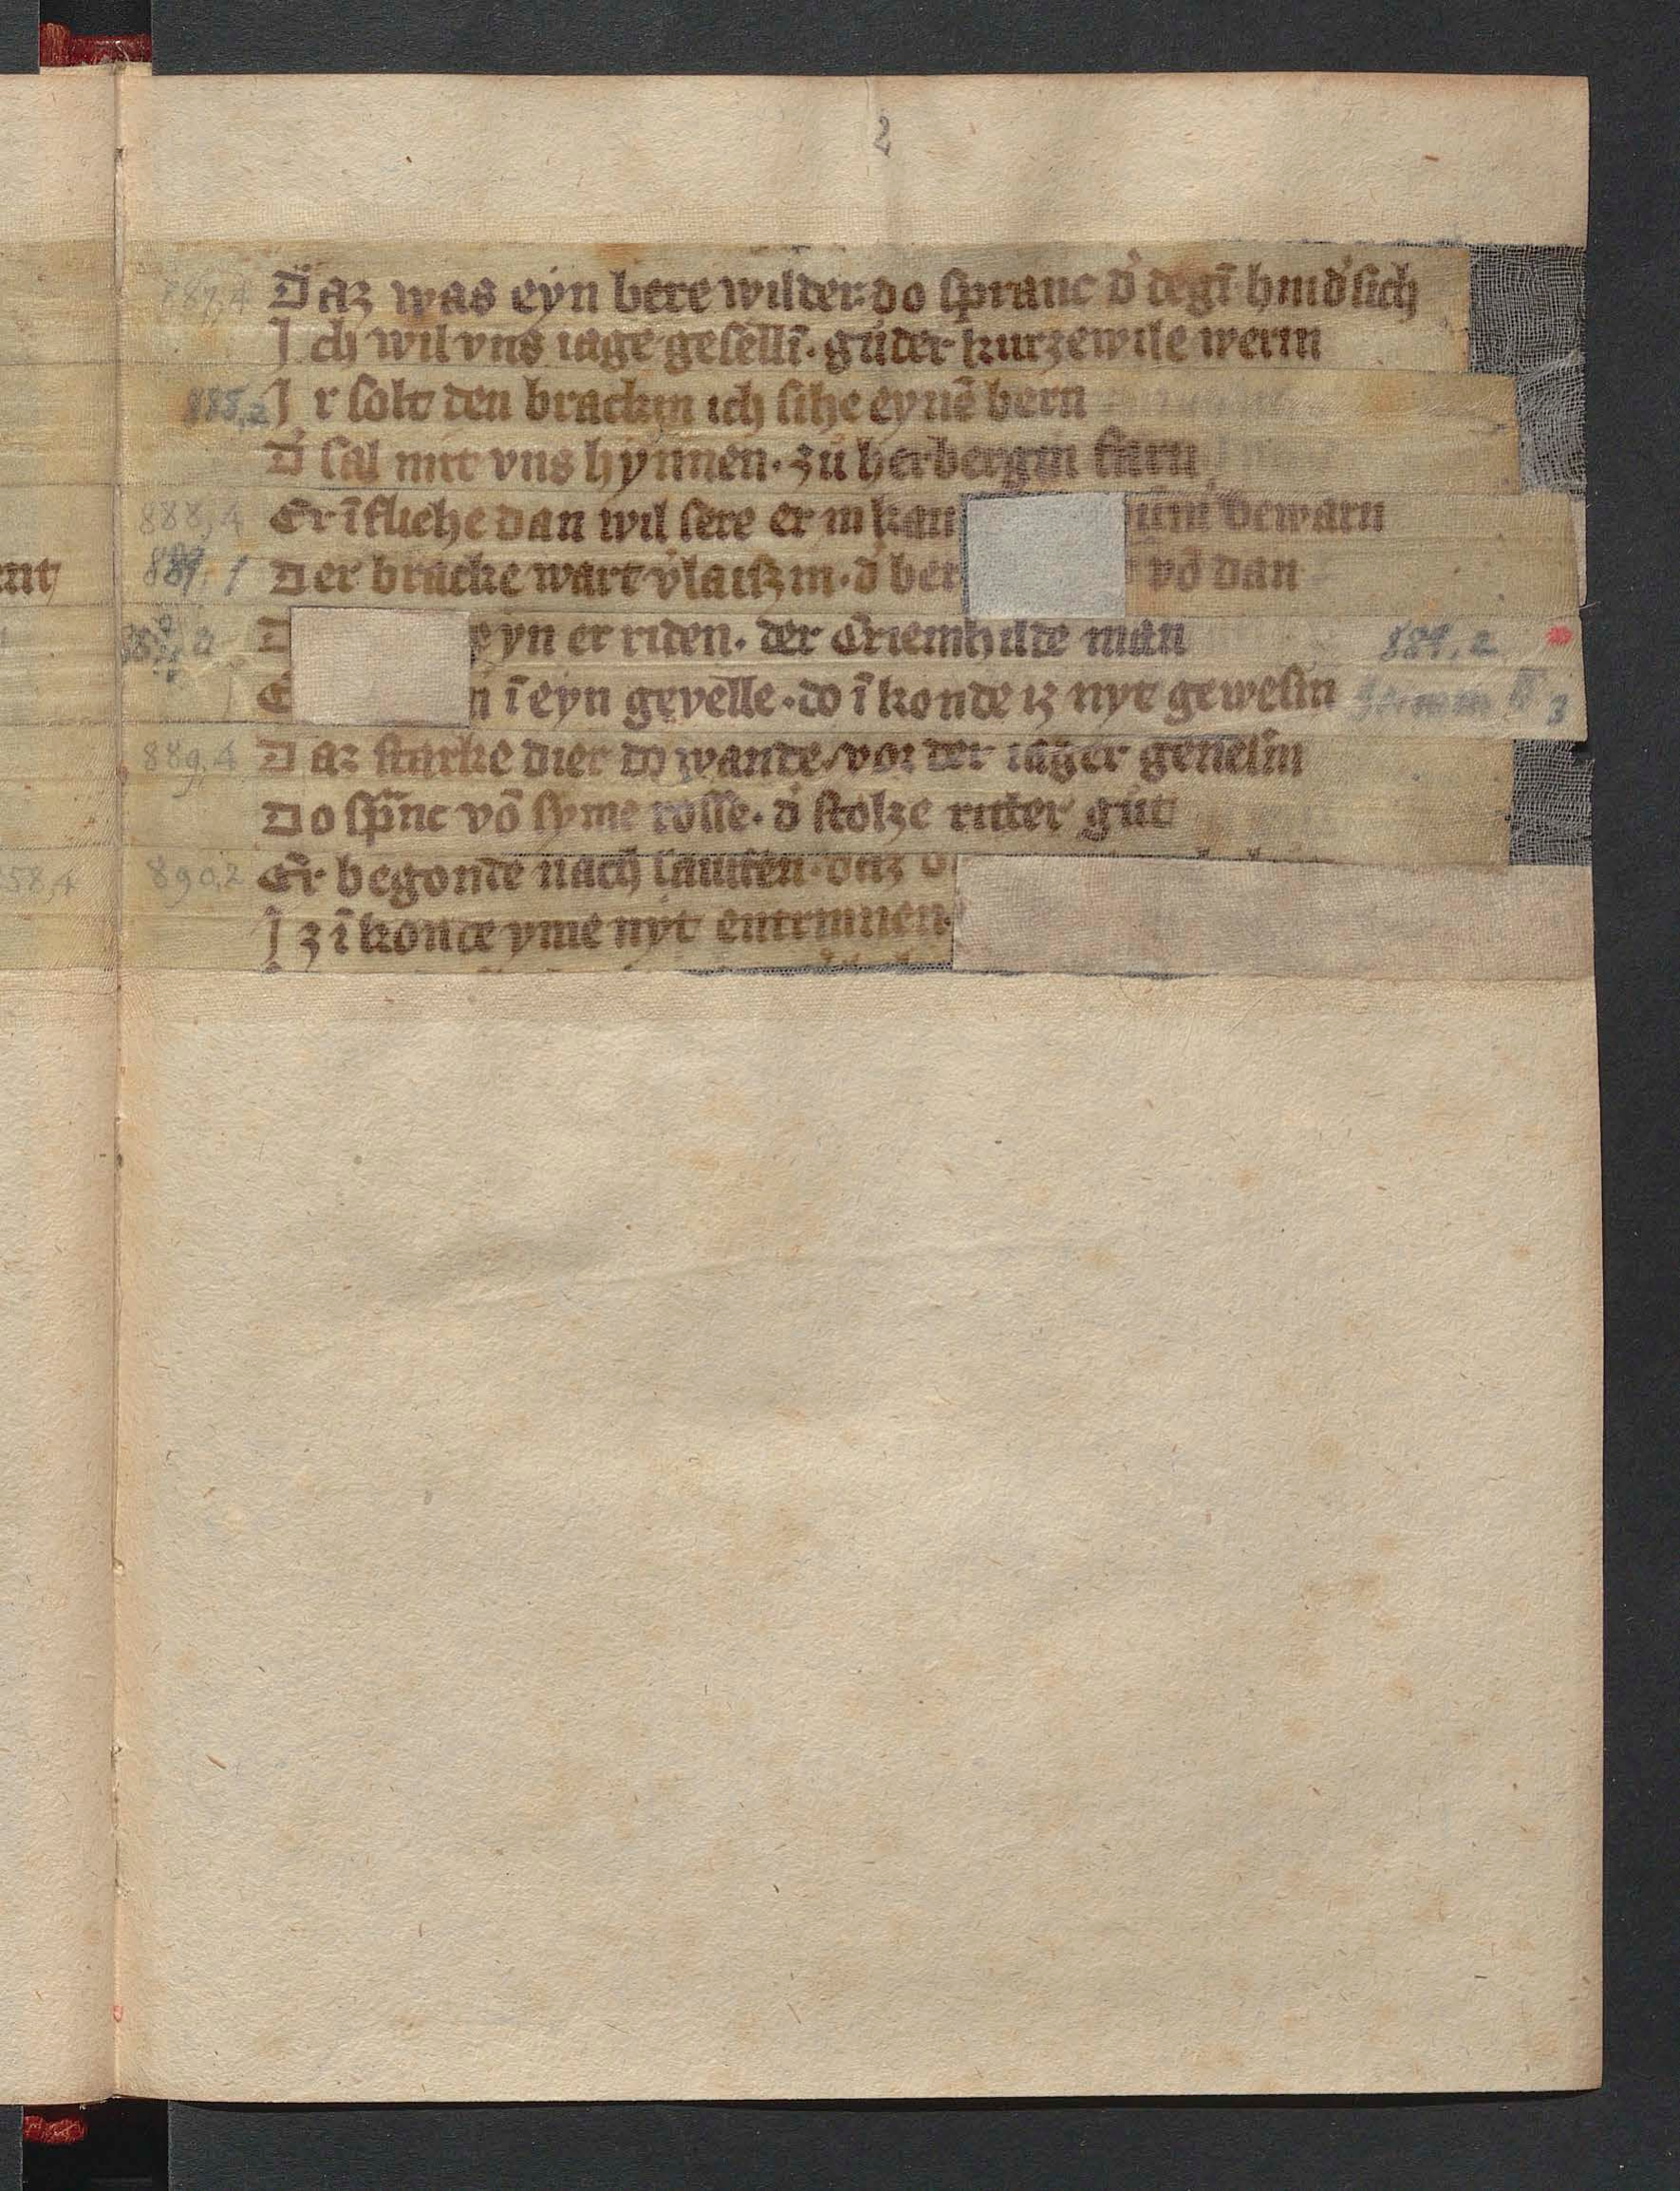 2
787,4 Daz was eyn bere wilder· do ſpranc d' degī hīnd' ſich
J ch wil vns iage geſellī· guͦder kurzewile werin
885,2 J r ſolt den brackin ich ſihe eynē bern
D' ſal mit vns hynnen· zuͦ herbergin farn
888,4 Er īfliehe dan wil ſere er in kan bewarn
nt 889,1 Der bracke wart v'laiſzin· d' ber vō dan
D eyn er riden· der Criemhilde man 889,2
E n ī eyn gevelle· do īkonde iz nyt geweſin 3
889,4 Daz ſtarke dier do wande/ vor der iager geneſin
Do ſpͣnc vō ſyme roſſe· d' ſtolze ritter guͦt
58,4 890,2 Er begonde nach lauffen· daz d
J z īkonde yme nyt entrinnen·